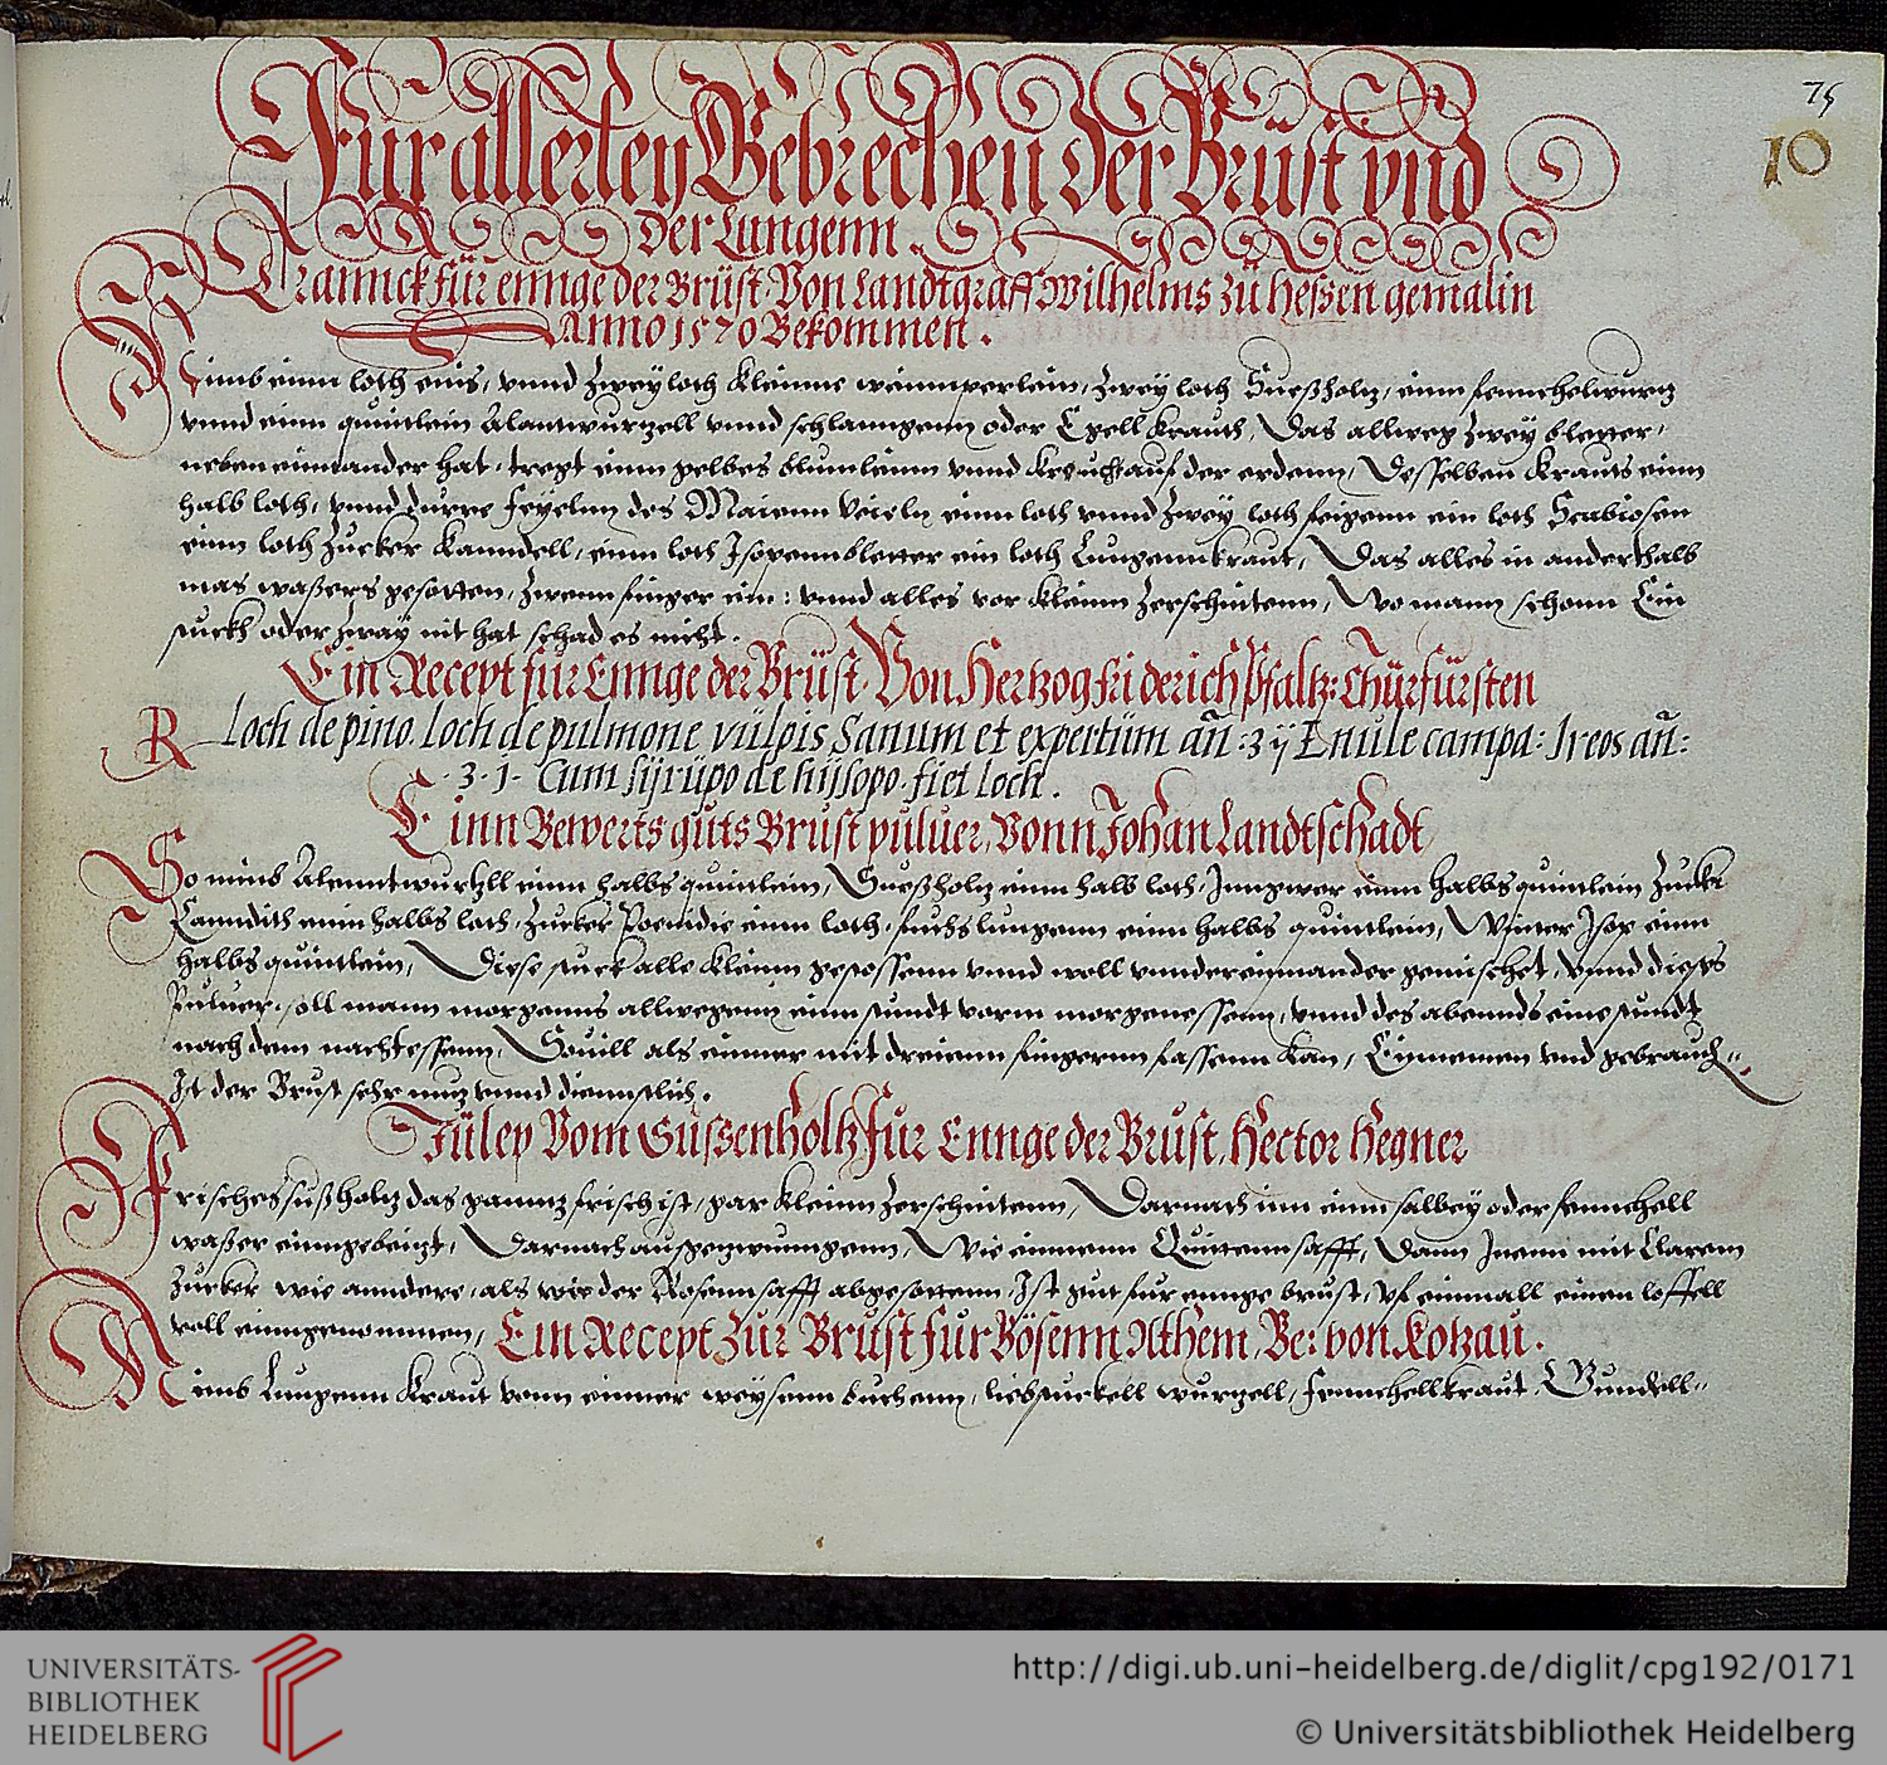 75
10
Für allerley Gebrechen der Brüst vnd
der Lungenn.
Trannck für ennge der Brüst. Von Landtgraff Wilhelms zü Hessen gemalin
Anno 1570 Bekommen.
Nimb einn loth enis, vnnd zwey loth kleinne weinnperlein, zwey loth Süeßholtz, einn fennchelwurtz
vnnd einn quintlein Alantwurtzell vnnd schlanngenn oder Egell krauth, Das allweg zwey bletter,
neben einnander hat, tregt einn gelbes blumleinn vnnd kreucht auf der erdenn, Desselben krauts einn
halb loth, vnnd durre feyeln des Maienn veieln einn loth vnnd zwey loth feigenn ein loth Scabiosen
einn loth zucker kanndell, einn loth Isopennbletter ein loth Lungennkraut, Das alles in anderthalb
mas waßers gesotten, zwenn finger ein: vnnd alles vor kleinn zerschnitenn, Wo mann schonn Ein
stuckh oder zway nit hat schad es nicht.
Ein Recept fur Ennge der Brüst. Von Hertzog friderich Pfaltz: Chürfürsten
R Loch de pino. Loch de pulmone vülpis Sanum et expertüm añ: ʒ ij Enule campa: Ireos añ:
.ʒ.j. Cum sÿrüpo de hÿsopo. fiet Loch.
Einn Bewerts guts Brust puluer, Vonn Johan Landtschadt
So nimb Alenntwurtzll einn halbs quintlein, Süeßholtz einn halb loth, Inngwer einn halbs quintlein Zucker
Canndith einn halbs loth, zucker Poenidie einn loth, fuchslungenn einn halbs quintlein, Winter Isop einn
halbs quintlein, Diese stuck alle kleinn gestossenn vnnd woll vnndereinnander gemischet, vnnd dieses
Puluer soll mann morgenns allwegenn einn stundt vorm morgenessenn, vnnd des abennds eine stundt
nach dem nachtessenn, Souill als einner mit dreienn fingernn fassenn kan, Einnemen vnd gebrauch"
Ist der Brust sehr nutz vnnd diennstlich.
Jüley Vom Süssenholtz Für Ennge der Brust, Hector Hegner
Frisches süßholtz das ganntz frisch ist, gar kleinn zerschnitenn, Darnach inn einn salbey oder fennchell
waßer einngebeizt, Darnach ausgezwunngenn, Wie einnenn Quittennsafft, Dann Inenn mit Clarem
zucker wie anndere, als wie der Rosennsafft abgesottenn, Ist gut fur ennge brust, vf einmall einen loffell
voll einngenommen, Ein Recept Zur Brust fur Bösenn Athem, Be: von Kotzau.
Nimb Lungenn kraut vonn einner weyssenn buchenn, liebstuckell wurtzell, fennchellkraut, Gundell"
UNIVERSITÄTS-
BIBLIOTHEK
HEIDELBERG
http://digi.ub.uni-heidelberg.de/diglit/cpg192/0171
© Universitätsbibliothek Heidelberg